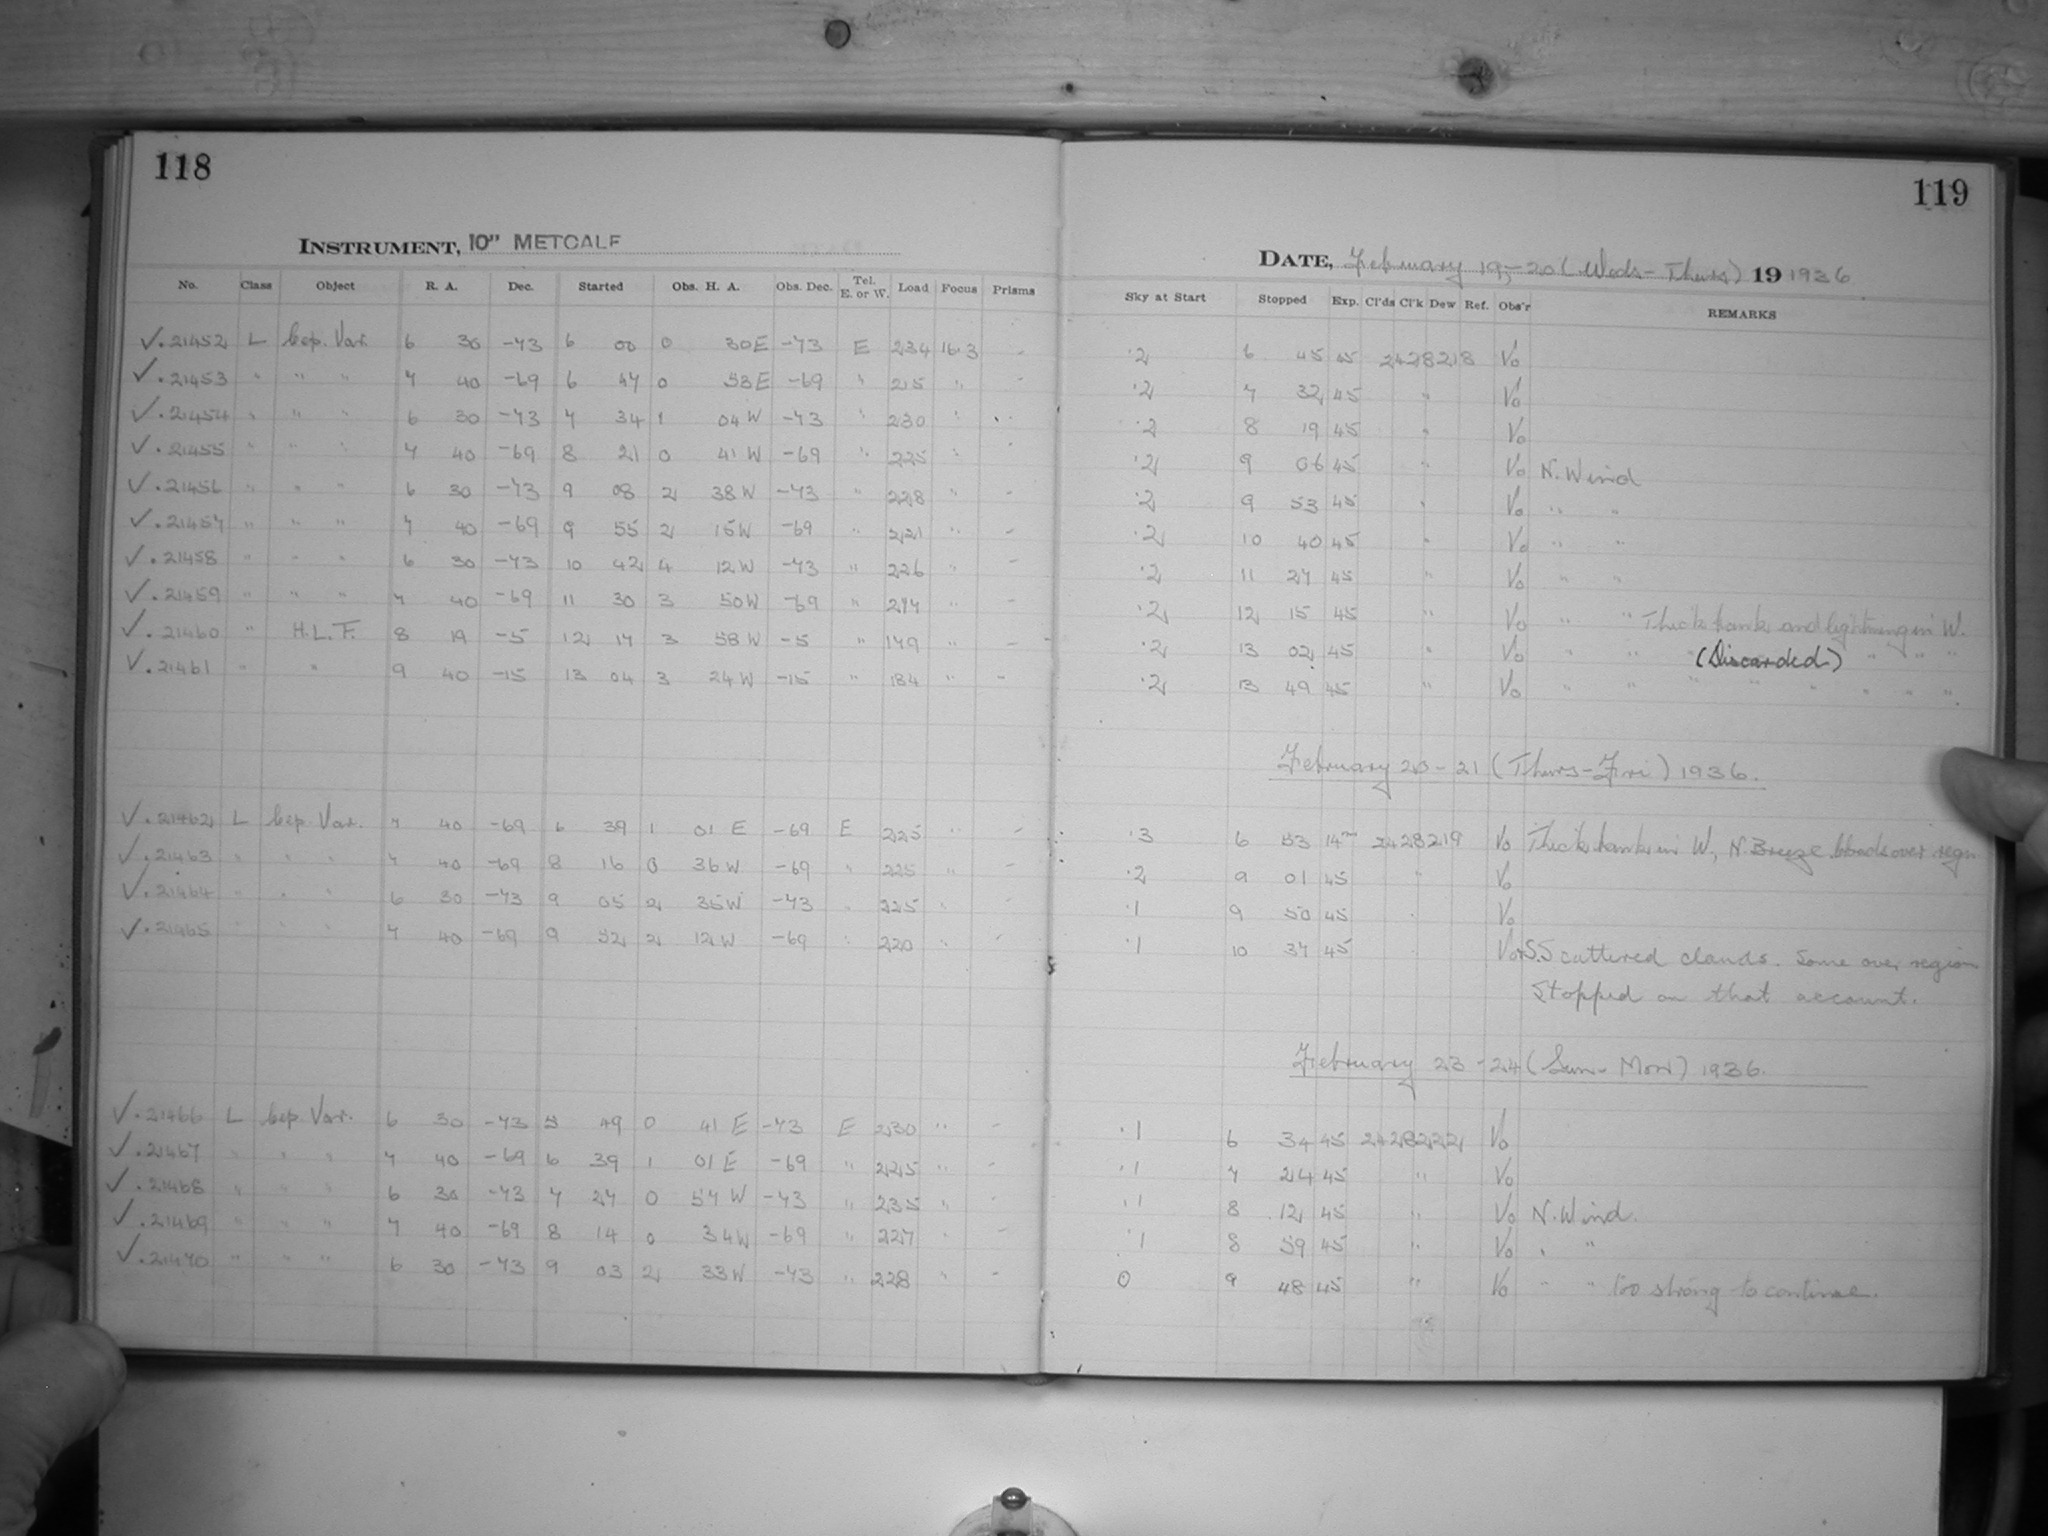 118
INSTRUMENT, 10" METCALF
No. Class Object R. A. Dec. Started Obs. H. A. Obs. Dec. Tel. E. or W. Load Focus Prisms
✓.21452 L Cep. Var. 6 30 -73 6 00 0 30E -73 E 234 16.3 -
✓.21453 " " " 7 40 -69 6 47 0 53E -69 " 215 " -
✓.21454 " " " 6 30 -73 7 34 1 04W -73 " 230 " -
✓.21455 " " " 7 40 -69 8 21 0 41W -69 " 225 " -
✓.21456 " " " 6 30 -73 9 08 2 38W -73 " 228 " -
✓.21457 " " " 7 40 -69 9 55 2 15W -69 " 221 " -
✓.21458 " " " 6 30 -73 10 42 4 12W -73 " 226 " -
✓.21459 " " " 7 40 -69 11 30 3 50W -69 " 217 " -
✓.21460 " H.L.F. 8 19 -5 12 17 3 58W -5 " 179 " -
✓.21461 " " 9 40 -15 13 04 3 24W -15 " 184 " -
✓.21462 L Cep. Var. 7 40 -69 6 39 1 01 E -69 E 225 " -
✓.21463 " " " 7 40 -69 8 16 0 36W -69 " 225 " -
✓.21464 " " " 6 30 -73 9 05 2 35W -73 " 225 " -
✓.21465 " " " 7 40 -69 9 52 2 12W -69 " 220 " -
✓.21466 L Cep. Var. 6 30 -73 5 49 0 41 E -73 E 230 " -
✓.21467 " " " 7 40 -69 6 39 1 01E -69 " 225 " -
✓.21468 " " " 6 30 -73 7 27 0 57W -73 " 235 " -
✓.21469 " " " 7 40 -69 8 14 0 34W -69 " 227 " -
✓.21470 " " " 6 30 -73 9 03 2 33W -73 " 228 " -
119
DATE, February 19-20 (Weds-Thurs) 19 1936
Sky at Start Stopped Exp. Cl'ds Cl'k Dew Ref. Obs'r REMARKS
.2 6 45 45 2428218 Vo
.2 7 32 45 " Vo
.2 8 19 45 " Vo
.2 9 06 45 " Vo N. Wind
.2 9 53 45 " Vo " "
.2 10 40 45 " Vo " "
.2 11 27 45 " Vo " "
.2 12 15 45 " Vo " " Thick bank and lightning in W.
.2 13 02 45 " Vo " " (Discarded) " " "
.2 13 49 45 " Vo " " " " " " " "
February 20-21 (Thurs-Fri) 1936.
.3 6 53 14m 2428219 Vo Thick bank in W, N. Breeze. Clouds over regn
.2 9 01 45 " Vo
.1 9 50 45 " Vo
.1 10 37 45 Vo Scattered clouds. Some over region
Stopped on that account.
February 23-24 (Sun-Mon) 1936.
.1 6 34 45 2428222 Vo
.1 7 24 45 " Vo
.1 8 12 45 " Vo N. Wind.
.1 8 59 45 " Vo " "
0 9 48 45 " Vo " " too strong to continue.